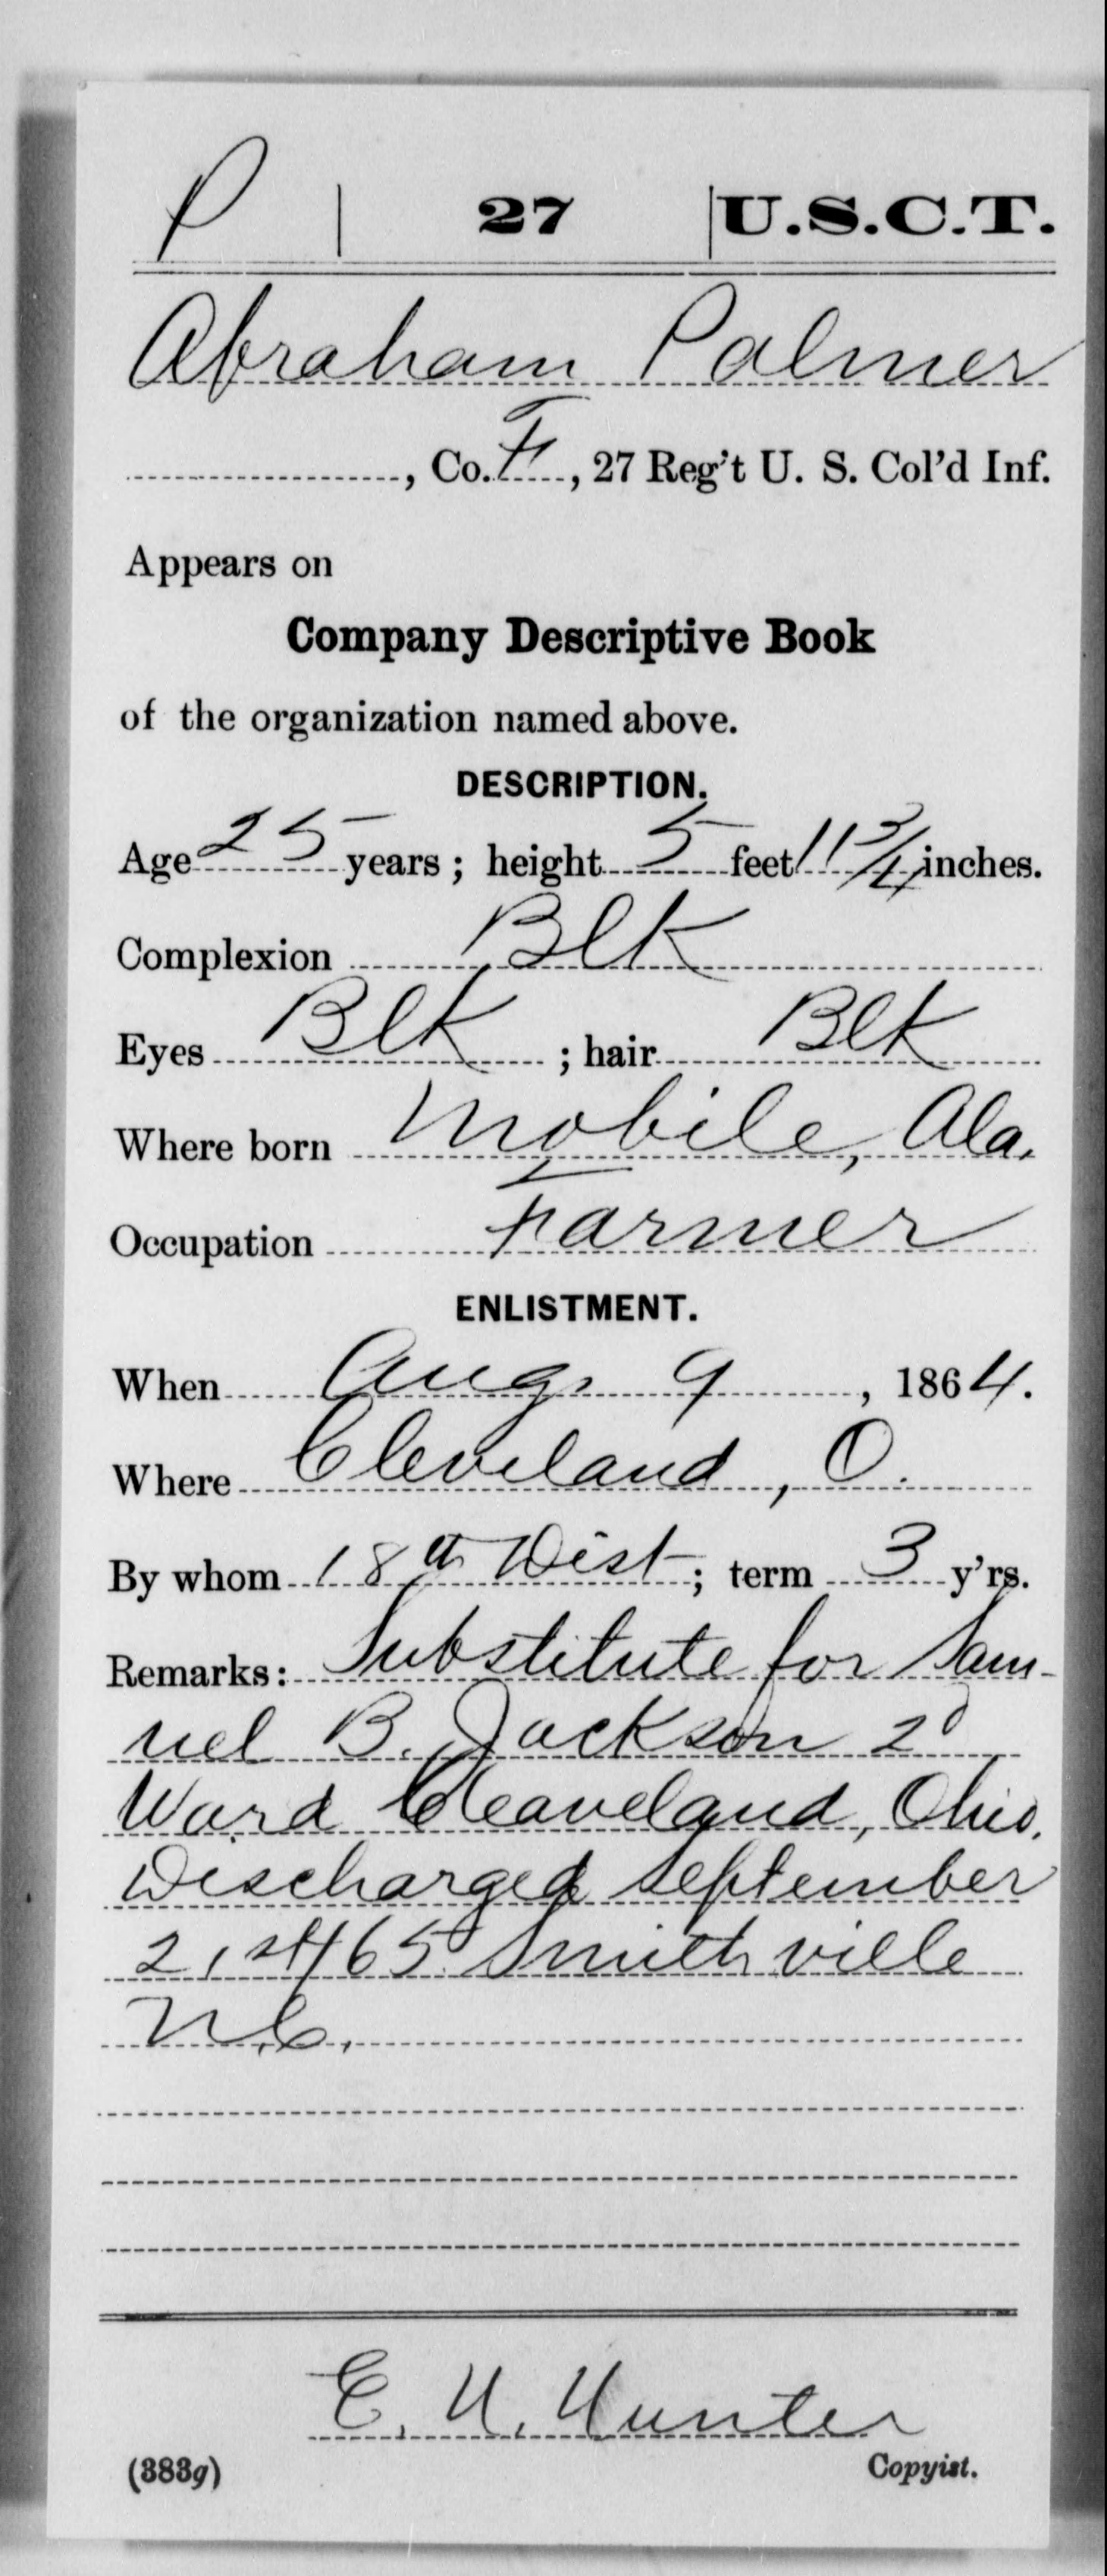 P | 27 | U.S.C.T.
Abraham Palmer
, Co. F, 27 Reg't U. S. Col'd Inf.
Appears on
Company Descriptive Book
of the organization named above.
DESCRIPTION.
Age 25 years; height 5 feet 11 3/4 inches.
Complexion Blk
Eyes Blk; hair Blk
Where born Mobile, Ala.
Occupation Farmer
ENLISTMENT.
When Aug. 9, 1864.
Where Cleveland, O.
By whom 18th Dist; term 3 y'rs.
Remarks: Substitute for Sam-
uel B. Jackson 2d
Ward Cleaveland, Ohio.
Discharged September
21st/65 Smithville
N.C.
E. H. Hunter
(383g) Copyist.